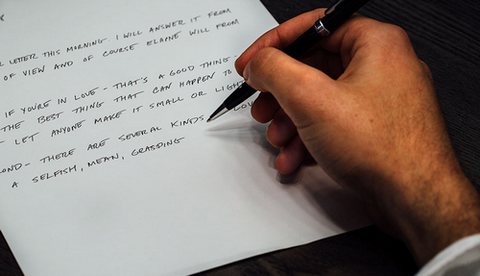 LETTER THIS MORNING. I WILL ANSWER IT FROM
OF VIEW AND OF COURSE ELAINE WILL FROM
IF YOU'RE IN LOVE - THAT'S A GOOD THING -
THE BEST THING THAT CAN HAPPEN TO
- LET ANYONE MAKE IT SMALL OR LIGH
OND - THERE ARE SEVERAL KINDS
A SELFISH, MEAN, GRASPING